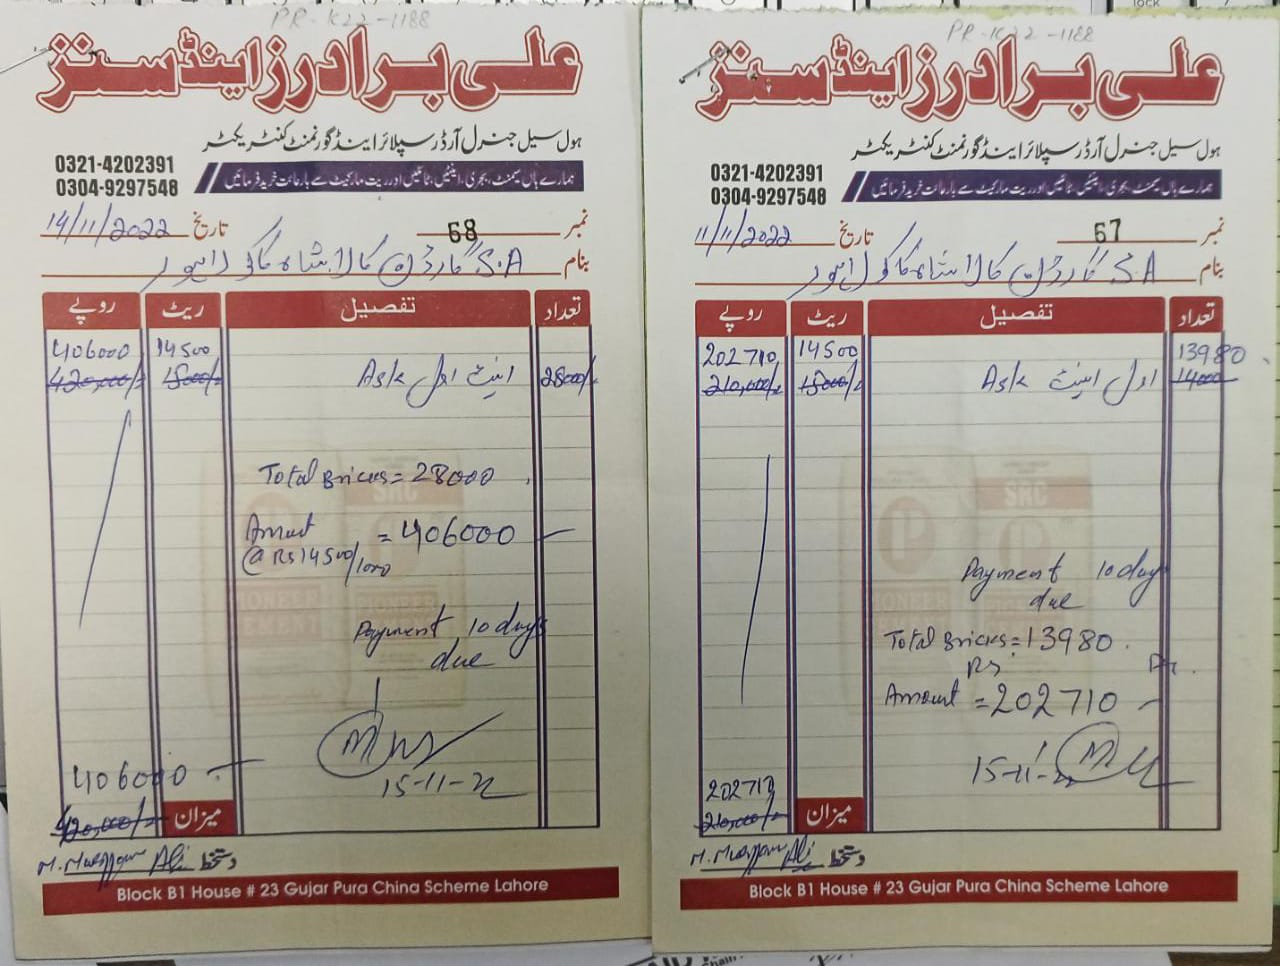 PR-K22-1188
علی برادرز اینڈ سنز
ہول سیل جنرل آرڈر سپلائر اینڈ گورنمنٹ کنٹریکٹر
0321-4202391
0304-9297548
ہمارے ہاں سیمنٹ، بجری، اینٹیں، ٹائلیں اور ریت مارکیٹ سے بارعائت خرید فرمائیں
نمبر 68 تاریخ 14/11/2022
بنام S.A گارڈن کالا شاہ کاکو لاہور
تعداد تفصیل ریٹ روپے
14500 406000
28000/- اینٹ اول Ask 15000/- 420,000/-
Total Bricks = 28000
Amount = 406000
@ Rs 14500/1000
Payment 10 days
due
15-11-22
406000
میزان 420,000/-
دستخط M. Muzammar Ali
Block B1 House # 23 Gujar Pura China Scheme Lahore
PR-K22-1188
علی برادرز اینڈ سنز
ہول سیل جنرل آرڈر سپلائر اینڈ گورنمنٹ کنٹریکٹر
0321-4202391
0304-9297548
ہمارے ہاں سیمنٹ، بجری، اینٹیں، ٹائلیں اور ریت مارکیٹ سے بارعائت خرید فرمائیں
نمبر 67 تاریخ 11/11/2022
بنام S.A گارڈن کالا شاہ کاکو لاہور
تعداد تفصیل ریٹ روپے
13980 14500 202710
14000 اول اینٹ Ask 15000/- 210,000/-
Payment 10 days
due
Total Bricks = 13980
Rs
Amount = 202710
15-11-22
202710
میزان 210,000/-
دستخط M. Muzammar Ali
Block B1 House # 23 Gujar Pura China Scheme Lahore